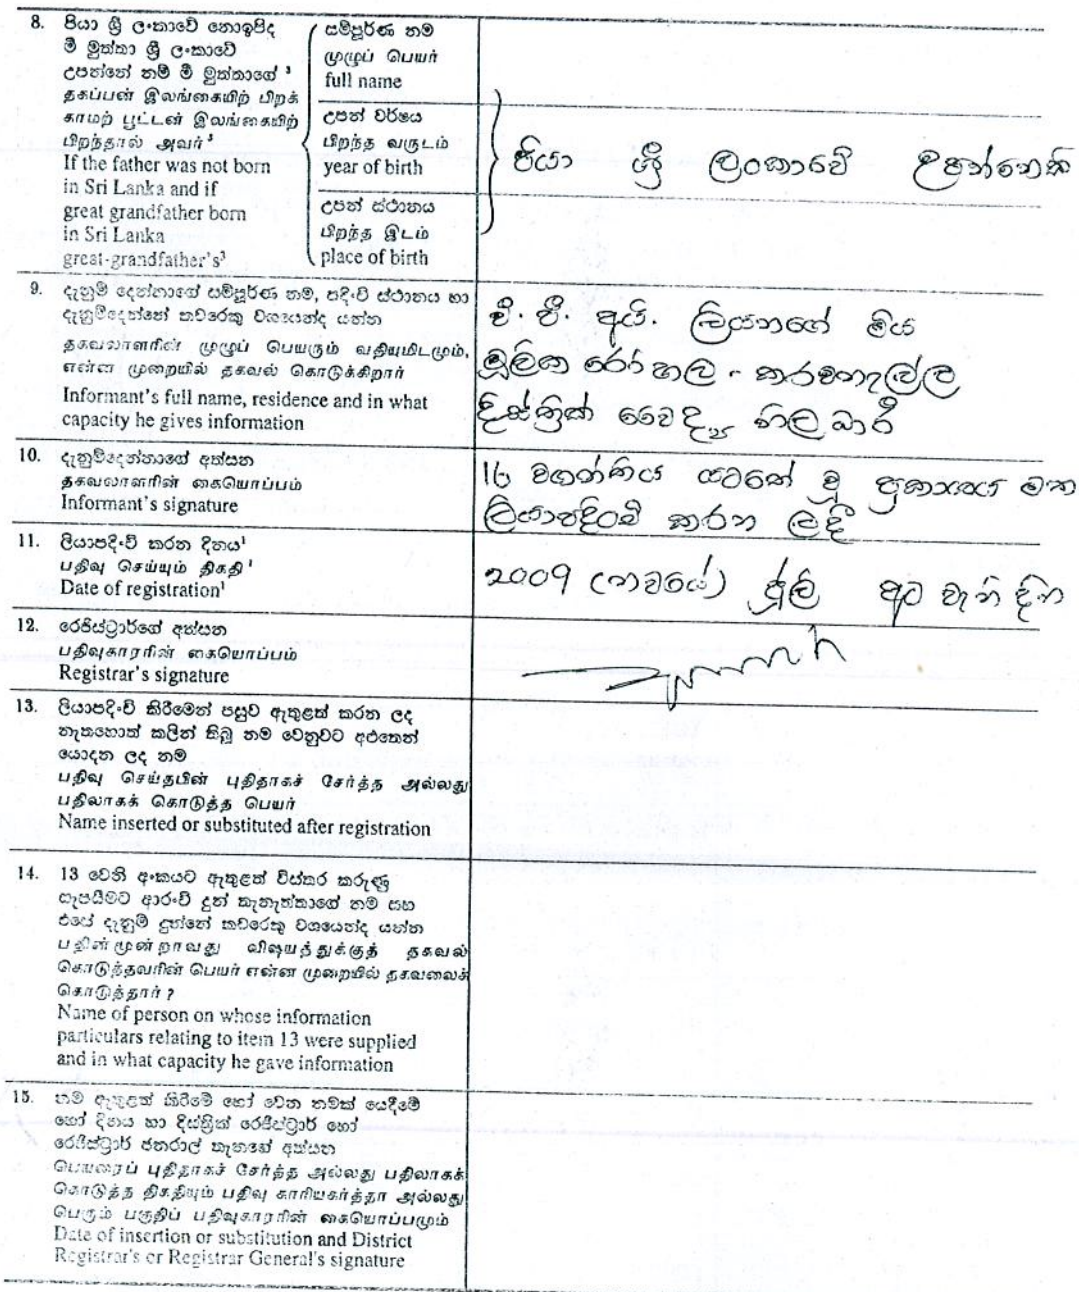 8. පියා ශ්‍රී ලංකාවේ නොඉපිද
මී මුත්තා ශ්‍රී ලංකාවේ
උපන්නේ නම් මී මුත්තාගේ ³
தகப்பன் இலங்கையிற் பிறக்
காமற் பூட்டன் இலங்கையிற்
பிறந்தால் அவர்³
If the father was not born
in Sri Lanka and if
great grandfather born
in Sri Lanka
great-grandfather's³
සම්පූර්ණ නම
முழுப் பெயர்
full name
උපන් වර්ෂය
பிறந்த வருடம்
year of birth
උපන් ස්ථානය
பிறந்த இடம்
place of birth
පියා ශ්‍රී ලංකාවේ උපන්නෙකි
9. දැනුම් දෙන්නාගේ සම්පූර්ණ නම, පදිංචි ස්ථානය හා
දැනුම්දෙන්නේ කවරෙකු වශයෙන්ද යන්න
தகவலாளரின் முழுப் பெயரும் வதியுமிடமும்,
என்ன முறையில் தகவல் கொடுக்கிறார்
Informant's full name, residence and in what
capacity he gives information
අයි. ලියනගේ මිය
මූලික රෝහල - කරවනැල්ල
දිස්ත්‍රික් වෛද්‍ය නිලධාරී
10. දැනුම්දෙන්නාගේ අත්සන
தகவலாளரின் கையொப்பம்
Informant's signature
16 වගන්තිය යටතේ වූ ප්‍රකාශය මත
ලියාපදිංචි කරන ලදී
11. ලියාපදිංචි කරන දිනය¹
பதிவு செய்யும் திகதி¹
Date of registration¹
2009 (නවයේ) ජූලි අට වැනි දින
12. රෙජිස්ට්‍රාර්ගේ අත්සන
பதிவுகாரரின் கையொப்பம்
Registrar's signature
13. ලියාපදිංචි කිරීමෙන් පසුව ඇතුළත් කරන ලද
නැතහොත් කලින් තිබූ නම වෙනුවට අළුතෙන්
යොදන ලද නම
பதிவு செய்தபின் புதிதாகச் சேர்த்த அல்லது
பதிலாகக் கொடுத்த பெயர்
Name inserted or substituted after registration
14. 13 වෙනි අංකයට ඇතුළත් විස්තර කරුණු
සැපයීමට ආරංචි දුන් තැනැත්තාගේ නම සහ
එසේ දැනුම් දුන්නේ කවරෙකු වශයෙන්ද යන්න
பதின்மூன்றாவது விஷயத்துக்குத் தகவல்
கொடுத்தவரின் பெயர் என்ன முறையில் தகவலைக்
கொடுத்தார் ?
Name of person on whose information
particulars relating to item 13 were supplied
and in what capacity he gave information
15. නම ඇතුළත් කිරීමේ හෝ වෙන නමක් යෙදීමේ
හෝ දිනය හා දිස්ත්‍රික් රෙජිස්ට්‍රාර් හෝ
රෙජිස්ට්‍රාර් ජනරාල් තැනගේ අත්සන
பெயரைப் புதிதாகச் சேர்த்த அல்லது பதிலாகக்
கொடுத்த திகதியும் பதிவு காரியகர்த்தா அல்லது
பெரும் பகுதிப் பதிவுகாரரின் கையொப்பமும்
Date of insertion or substitution and District
Registrar's or Registrar General's signature